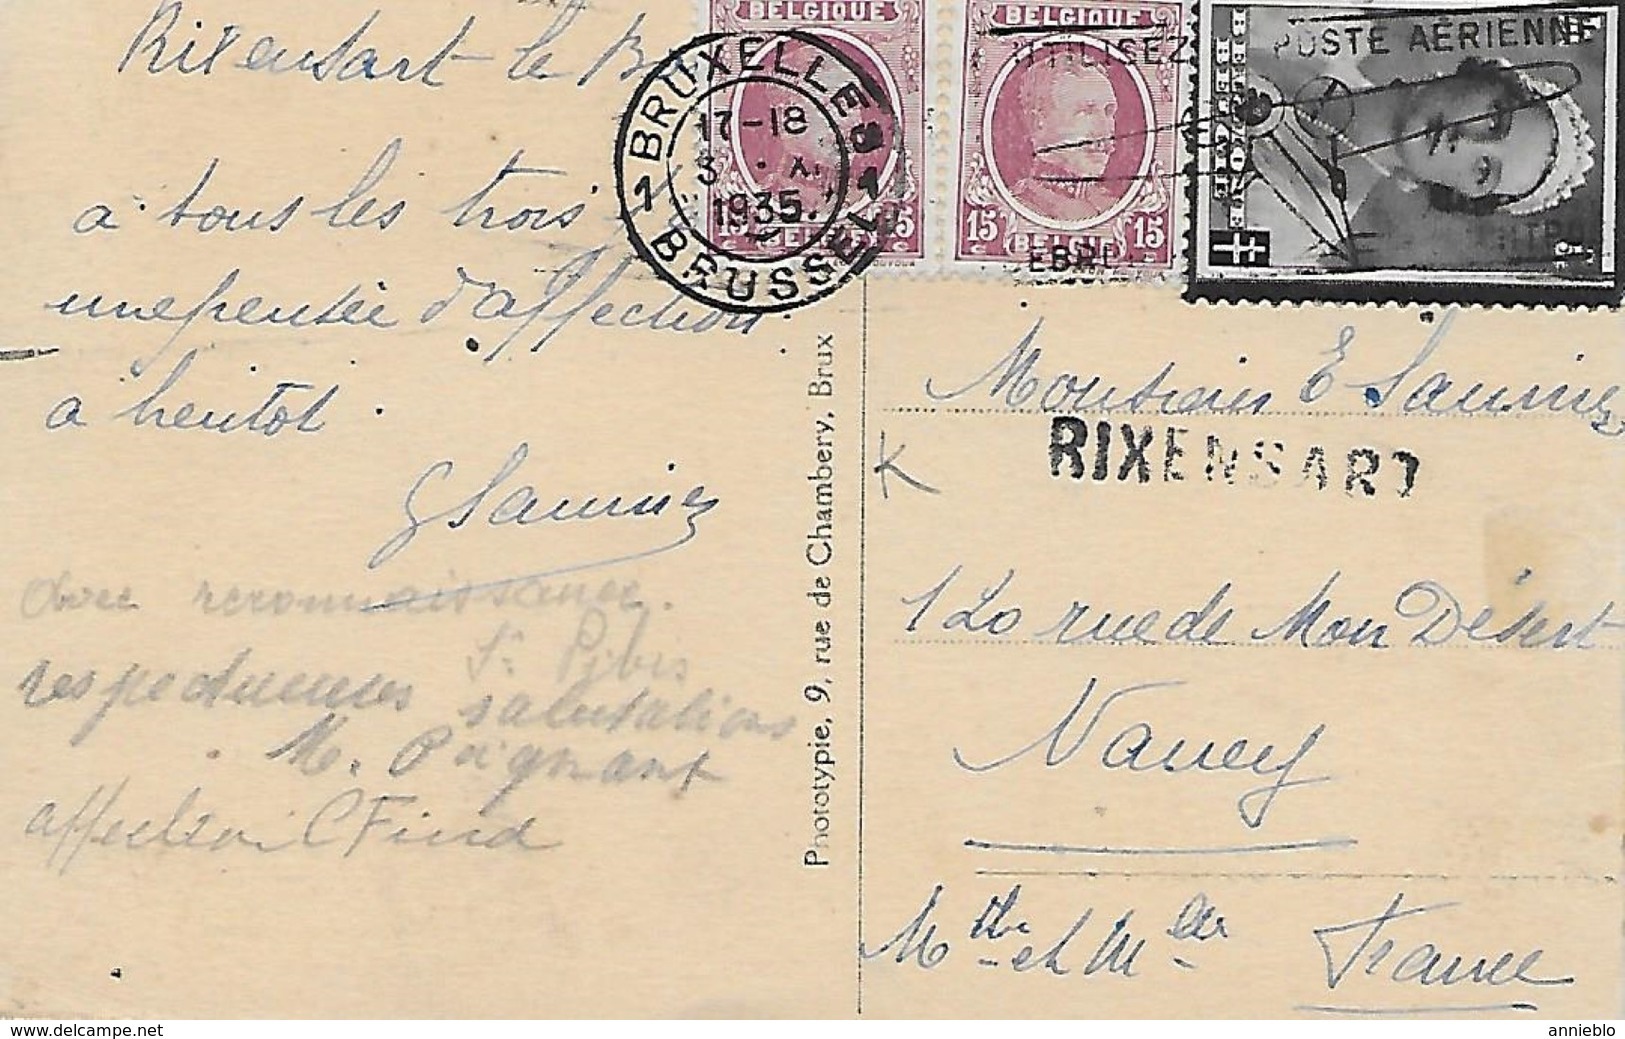 Rixensart le
à tous les trois
une pensée d'affection
à bientot.
GSaunier
avec reconnaissance.
respectueuses salutations
M. Poignant
affection
BRUXELLES 1
17-18
3 · XI
1935
1 BRUSSEL 1
BELGIQUE
15 15
BELGIË
BELGIQUE
15 15
BELGIË
UTILISEZ
POSTE AÉRIENNE
Phototypie, 9, rue de Chambery, Brux
Monsieur E Saunier
RIXENSART
K
120 rue de Mon Désert
Nancy
Mthe et Mlle
France
delcampe.net
annieblo